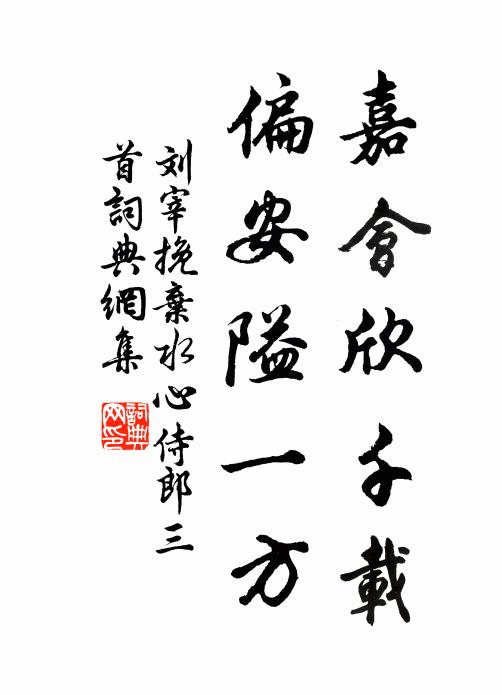 嘉會欣千載
偏安隘一方
刘宰挽棄水心侍郎三
首詞典網集
詞典网印